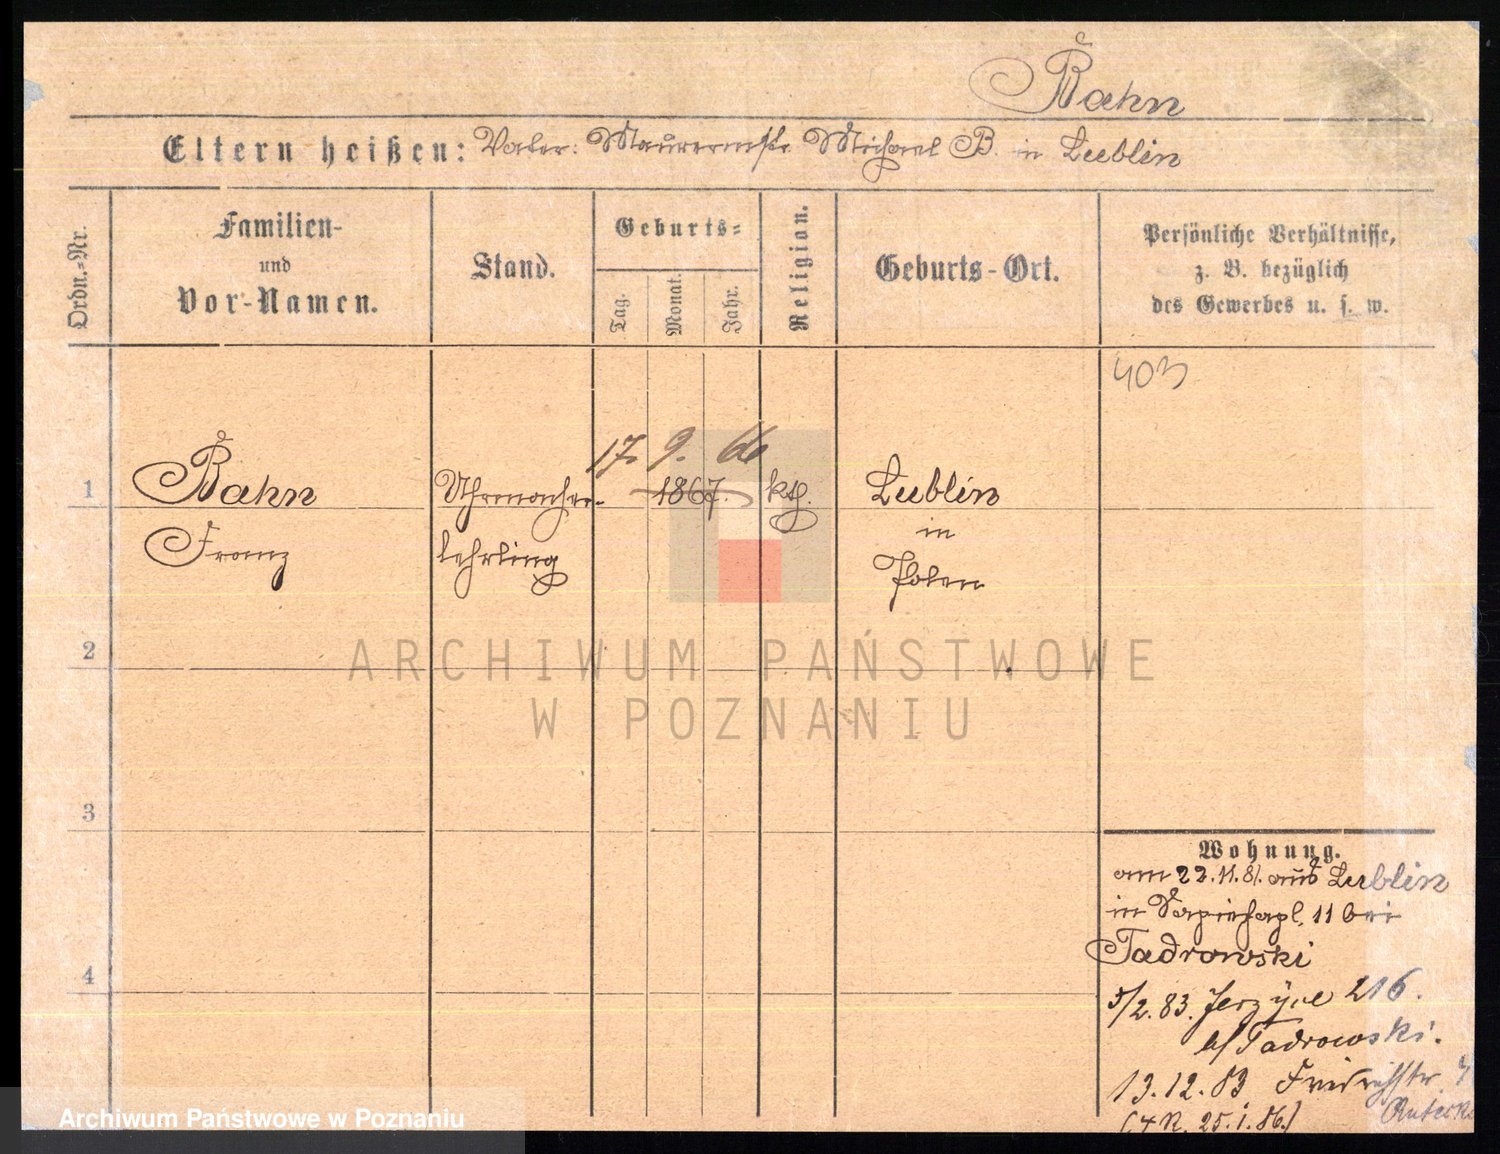 Bahn
Eltern heißen: Vater: Maurermstr. Michael B. in Lublin
Ordn.-Nr.
Familien-
und
Vor-Namen.
Stand.
Geburts-
Tag.
Monat.
Jahr.
Religion.
Geburts-Ort.
Persönliche Verhältnisse,
z. B. bezüglich
des Gewerbes u. s. w.
403
17. 9. 66
1 Bahn Uhrmacher- 1867. kth. Lublin
Franz lehrling in
Polen
2
ARCHIWUM PAŃSTWOWE
W POZNANIU
3
Wohnung.
am 22.11.81. aus Lublin
in Sapiehapl. 11 bei
Tadrowski
4
5/2. 83. Jerzyce 216.
b/Tadrowski.
13.12.83 Friedrichstr.
25.1.86.)
Archiwum Państwowe w Poznaniu